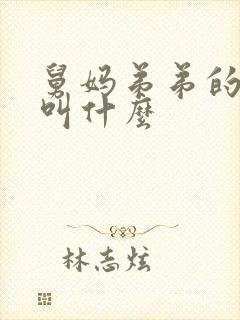 舅妈弟弟的
叫什麼
林志炫